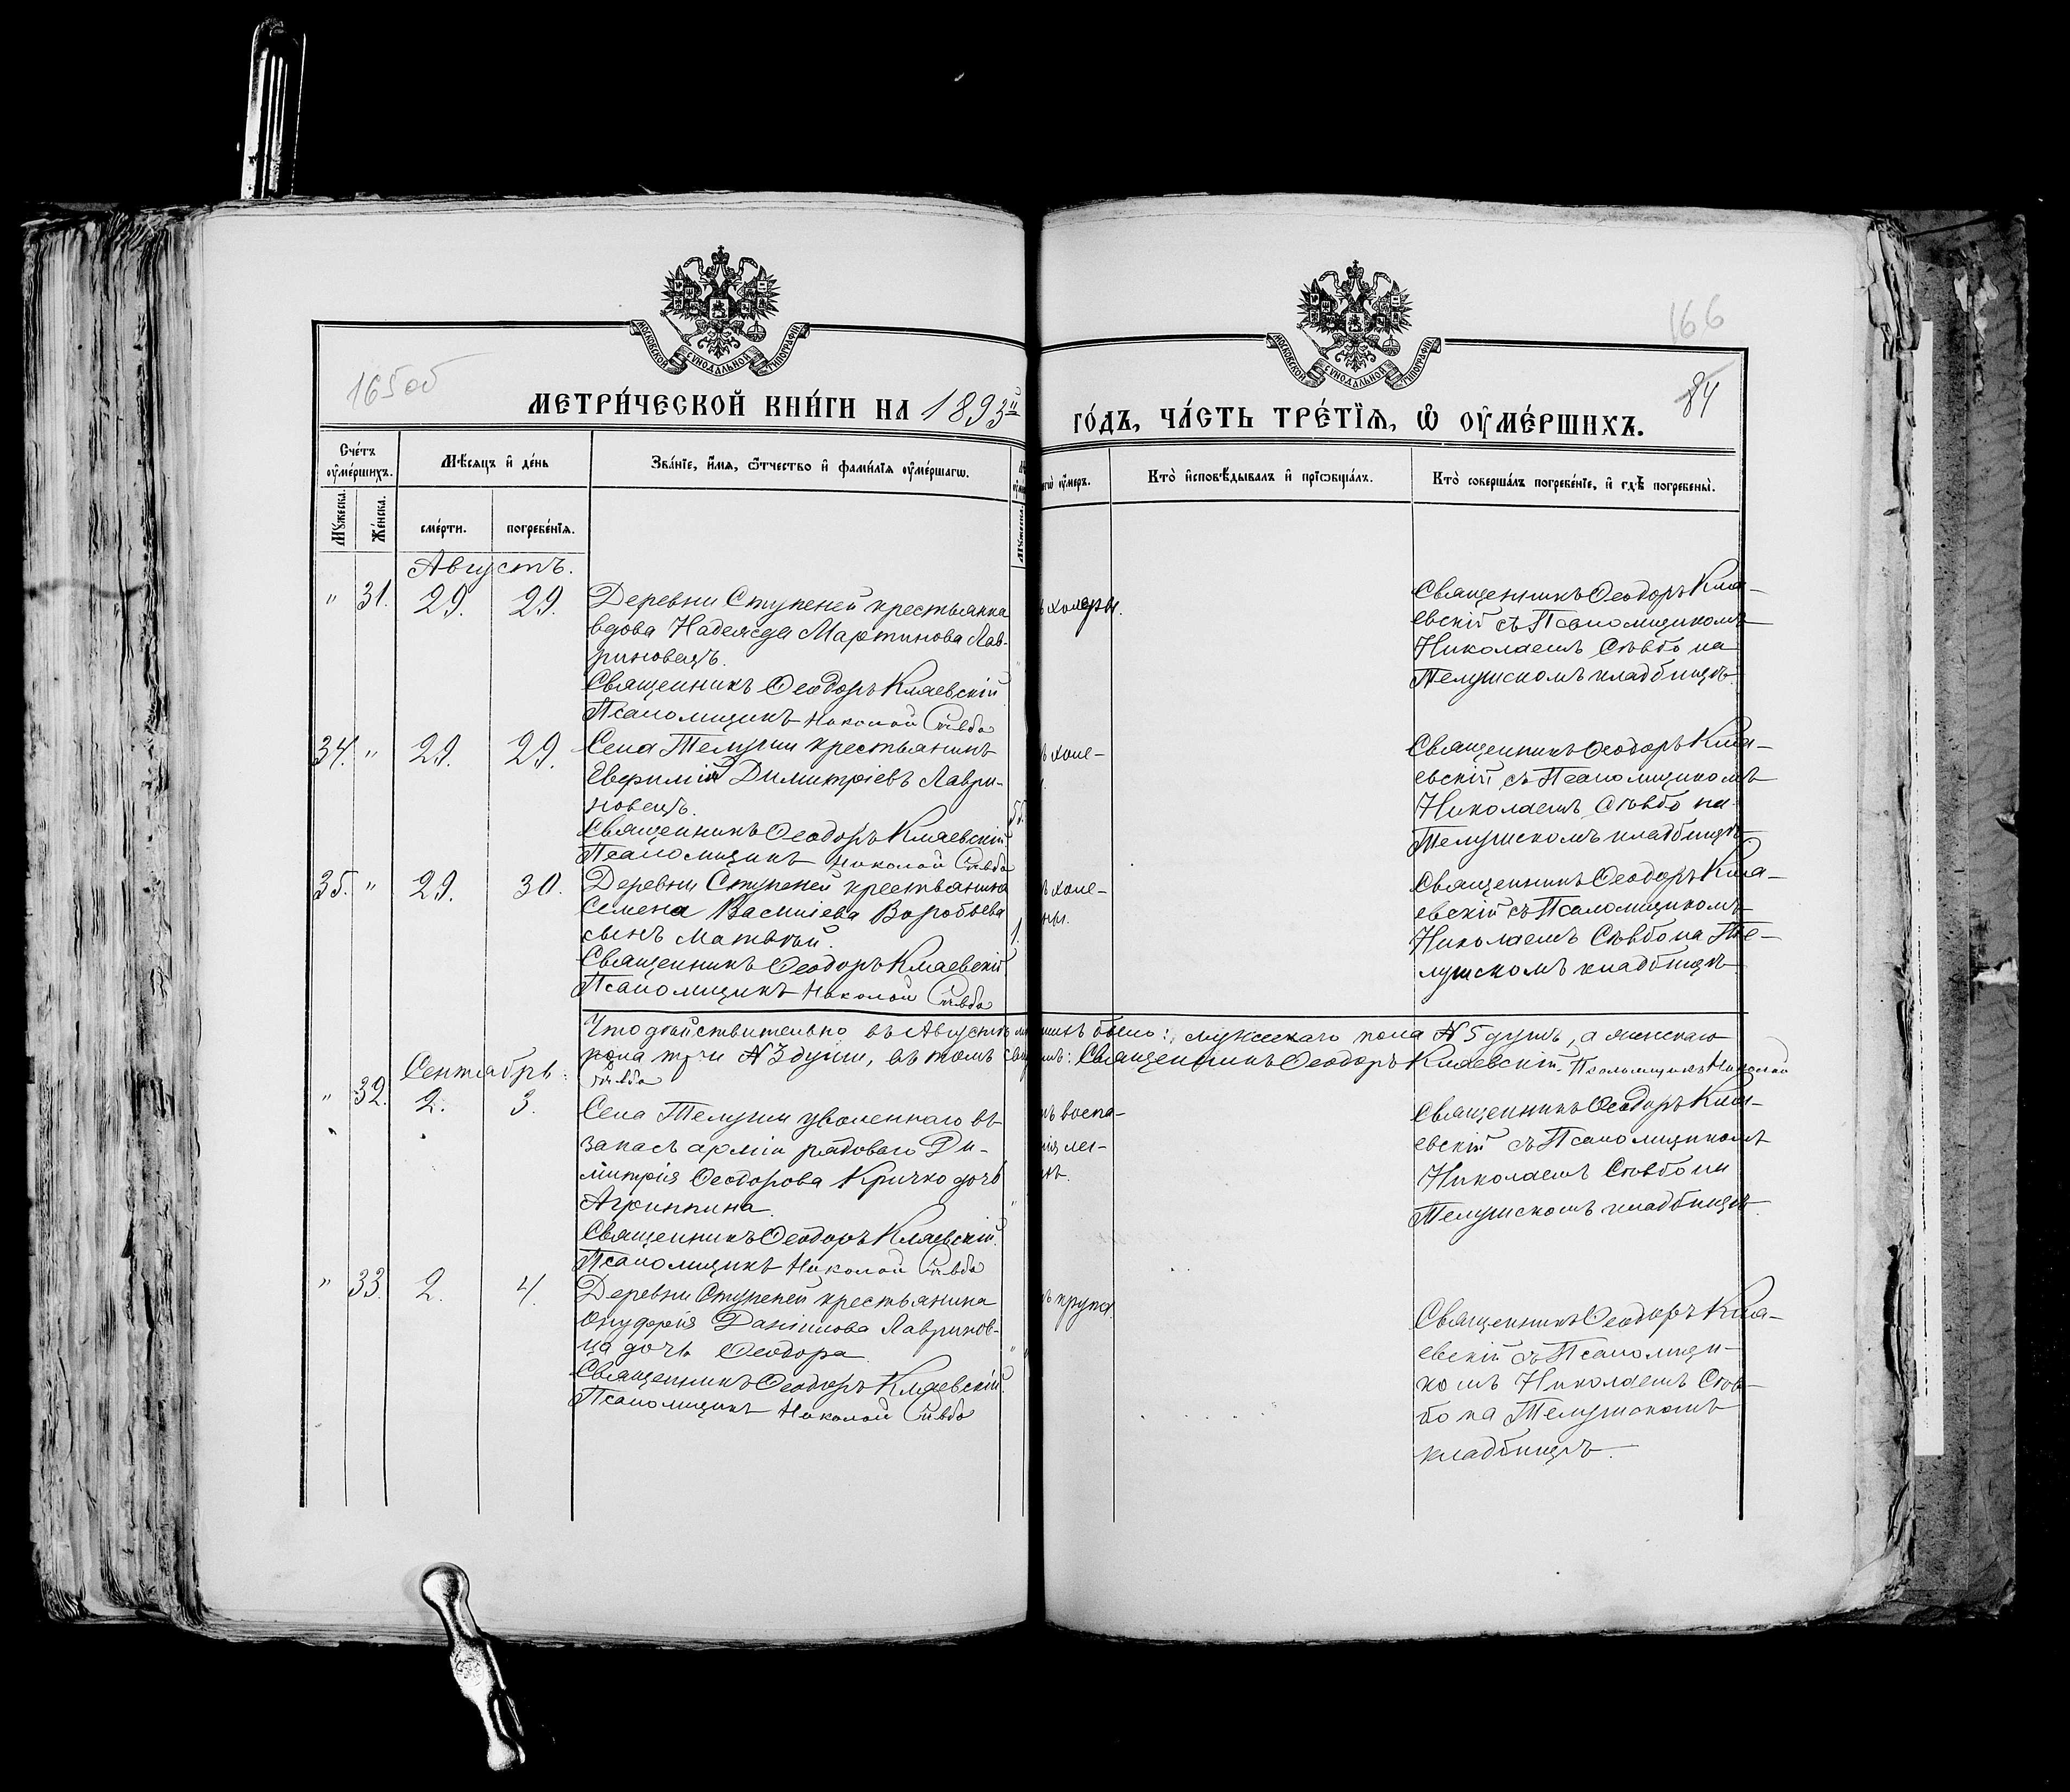 165 об
166
84
МОСКОВСКОЙ СѴНОДАЛЬНОЙ ТИПОГРАФІИ
МОСКОВСКОЙ СѴНОДАЛЬНОЙ ТИПОГРАФІИ
МЕТРИ́ЧЕСКОЙ КНИ́ГИ НА 1893й
ГО́ДЪ, ЧА́СТЬ ТРЕ́ТЇѦ, Ѡ ОУМЕ́РШИХЪ.
Сче́тъ оуме́ршихъ.
Мѣ́сяцъ и де́нь
Зва́нїе, и́мя, ѿчество и фами́лїя оуме́ршагѡ.
Кто̀ исповѣ́дывалъ и прїѡбща́лъ.
Кто̀ соверша́лъ погребе́нїе, и гдѣ̀ погребены̀.
Мꙋжеска.
Же́нска.
сме́рти.
погребе́нїя.
Августъ.
" 31. 29. 29.
Деревни Ступеней крестьянка
вдова Надежда Мартинова Лав-
риновецъ.
Священникъ Ѳеодоръ Кляевскій
Псаломщикъ Николай Стѣбо
холеры.
Священникъ Ѳеодоръ Кля-
евскій съ Псаломщикомъ
Николаемъ Стѣбо на
Телушскомъ кладбищѣ.
34. " 29. 29.
Села Телуши крестьянинъ
Евфимій Димитріевъ Лаври-
новецъ.
Священникъ Ѳеодоръ Кляевскій
Псаломщикъ Николай Стѣбо
55.
холе-
Священникъ Ѳеодоръ Кля-
евскій съ Псаломщикомъ
Николаемъ Стѣбо на
Телушскомъ кладбищѣ.
35. " 29. 30.
Деревни Ступеней крестьянина
Семена Василіева Воробьева
сынъ Матѳей.
Священникъ Ѳеодоръ Кляевскій
Псаломщикъ Николай Стѣбо
1.
холе-
Священникъ Ѳеодоръ Кля-
евскій съ Псаломщикомъ
Николаемъ Стѣбо на Те-
лушскомъ кладбищѣ
Что дѣйствительно въ Августѣ было: мужескаго пола № 5 душъ, а женскаго
пола три № 3 души, въ томъ Священникъ Ѳеодоръ Кляевскій. Псаломщикъ Николай
Стѣбо
Сентябрь.
" 32. 2. 3.
Села Телуши уволеннаго въ
запасъ арміи рядоваго Ди-
митрія Ѳеодорова Кричко дочь
Агриппина.
Священникъ Ѳеодоръ Кляевскій.
Псаломщикъ Николай Стѣбо
воспа-
Священникъ Ѳеодоръ Кля-
евскій съ Псаломщикомъ
Николаемъ Стѣбо на
Телушскомъ кладбищѣ.
" 33. 2. 4.
Деревни Ступеней крестьянина
Онуфрія Даніилова Лавринов-
ца дочь Ѳеодора
Священникъ Ѳеодоръ Кляевскій.
Псаломщикъ Николай Стѣбо
крупа.
Священникъ Ѳеодоръ Кля-
евскій съ Псаломщи-
комъ Николаемъ Стѣ-
бо на Телушскомъ
кладбищѣ.